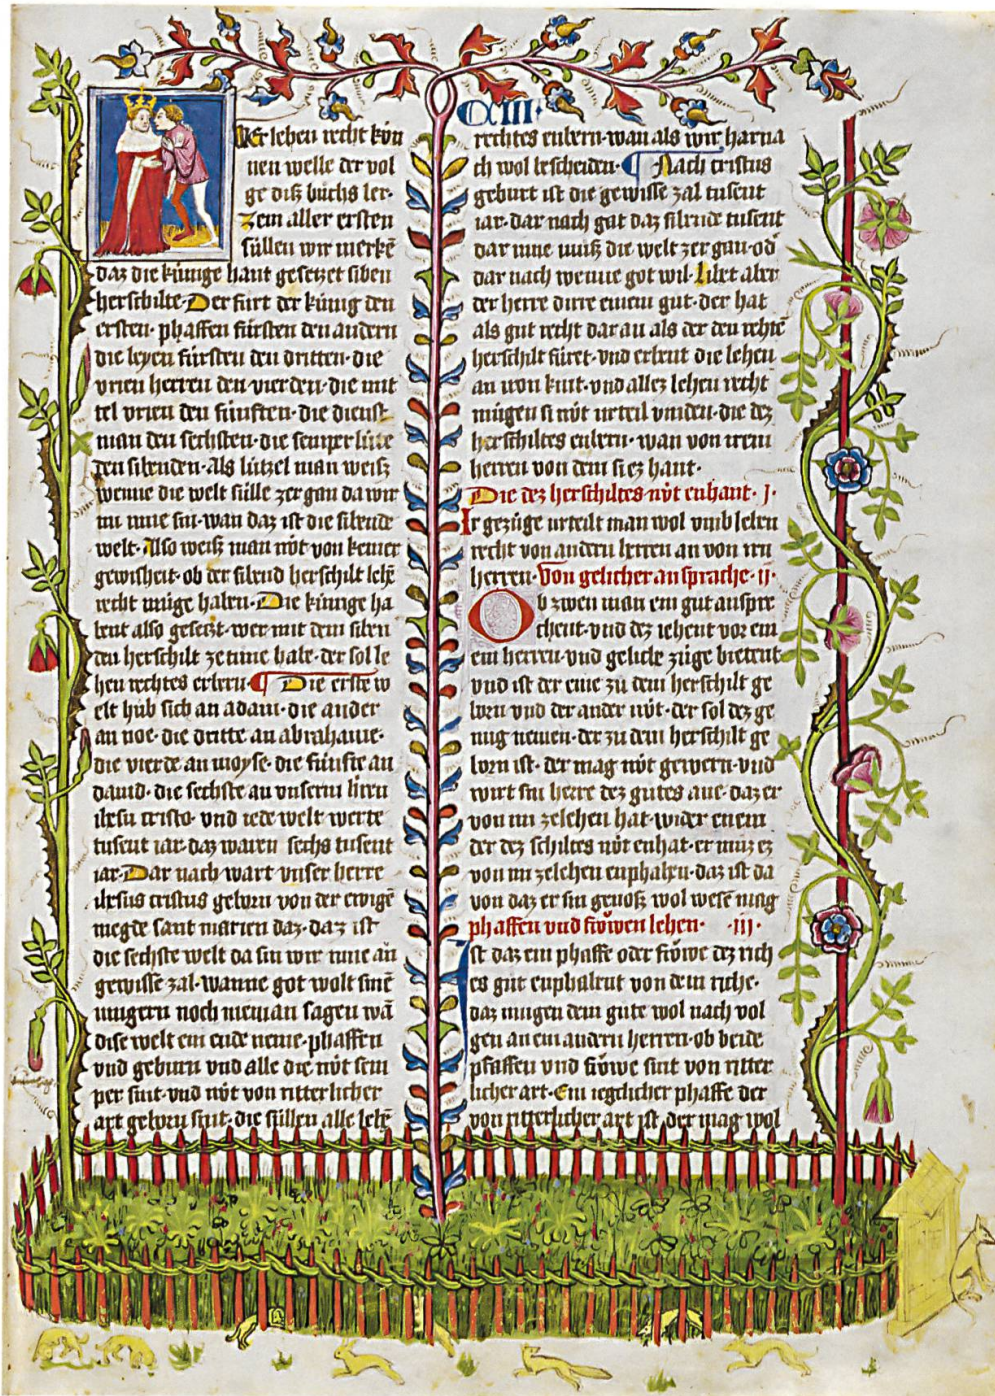 CXIII
Wer lehen recht kön
nen welle der vol
ge diß buchs ler.
Zem aller ersten
süllen wir merkē
daz die künige hant gesetzet siben
herschilte. Der fürt der künig den
ersten. phaffen fürsten den andern
die leyen fürsten den dritten. die
vrien herren den vierden. die mit
tel vrien den fünften. die dienst
man den sechsten. die semper lüte
den sibenden. als lützel man weisz
wenne die welt sülle zergan da wir
inne sin. wan daz ist die sibende
welt. Also weisz man nöt von keiner
gewisheit. ob der sibend herschilt lehē
recht müge haben. Die künige ha
bent also gesetzt. wer mit dem siben
den herschilt zetune habe. der sol le
hen rechtes erbern. Die erste w
elt hüb sich an adam. die ander
an noe. die dritte an abrahame.
die vierde an moyse. die fünfte an
david. die sechste an unserm hern
ihesu cristo. vnd iede welt werte
tusent iar. daz waren sechs tusent
iar. Dar nach wart vnser herre
ihesus cristus geborn von der ewigē
megde sant marien daz. daz ist
die sechste welt da sin wir inne an
gewisse zal. wanne got wolt sinē
iungern noch nieman sagen wā
dise welt ein ende neme. phaffen
vnd geburn vnd alle die nöt sem
per sint. vnd nöt von ritterlicher
art geborn sint. die süllen alle lehē
rechtes enbern. wan als wir harna
ch wol bescheiden. Nach cristus
geburt ist die gewisse zal tusent
iar. dar nach gat daz sibende tusent
dar inne muß die welt zergan. od̄
dar nach wenne got wil. Lihet aber
der herre dirre einem gut. der hat
als gut recht daran als der den rehtē
herschilt füret. vnd erbent die lehen
an iron kint. vnd allez lehen recht
mügen si nöt urteil vinden. die dez
herschiltes enbern. wan von irem
herren von dem si ez hant.
Die dez herschiltes nöt enhant. j.
Ir gezüge urteilt man wol vmb lehen
recht von andern herren an von irn
herren. Von gelicher ansprache. ij.
Ob zwen man ein gut anspre
chent. vnd dez iehent vor ein
em herren. vnd geliche züge bietent
vnd ist der eine zü dem herschilt ge
born vnd der ander nöt. der sol dez ge
nüg nemen. der zu dem herschilt ge
born ist. der mag nöt gewern. vnd
wirt sin herre dez gutes ane. daz er
von im zelehen hat. wider einem
der dez schiltes nöt enhat. er muz ez
von im zelehen enphahen. daz ist da
von daz er sin genoß wol wesē mag
phaffen vnd frowen lehen. iij.
Ist daz ein phaffe oder frowe dez rich
es gut enphahent von dem riche.
daz mugen dem gute wol nach vol
gen an ein andern herren. ob beide
pfaffen vnd frowe sint von ritter
licher art. Ein iegelicher phaffe der
von ritterlicher art ist. der mag wol